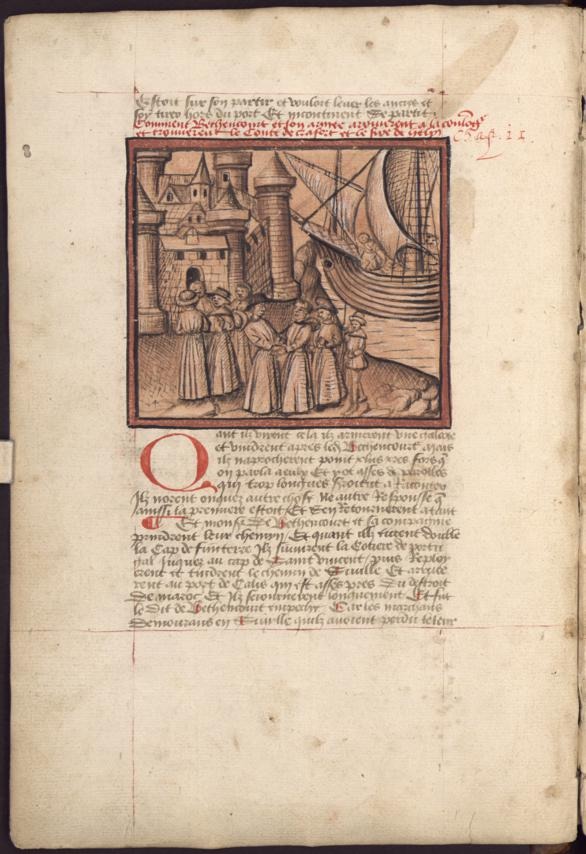 Estoit sur son partir et vouloit lever les ancres et
soy tirer hors du port Et incontinent se partit
Comment Bethencourt et son armee arriverent a la coulongne
et trouverent le Conte de Crafort et le sire de
Chap. II
Quant ilz virent cela ilz armerent une galere
et vindrent apres ledit Bethencourt mais
ilz naprocherent point plus pres fors que
on parla a eulx Et y ot asses de parolles
qui trop longues seroient a Raconter
Ilz norent onques autre chose ne autre Responsse que
ainssi la premiere estoit Et sen Retournerent atant
Et monsr De Bethencourt et sa compagnie
prindrent leur chemin Et quant ilz furent double
la Cap de finterre Ilz suivirent la Costiere de portu
gal Jusques au cap de Saint vincent puis Reploy
erent et tindrent le chemin de Siville Et arrive
rent au port de Calis qui est asses pres Du destroit
De maroc Et Ilz seiournerent longuement Et fut
le Dit de Bethencourt empesche Car les marchans
Demourans en Siville quilz avoient perdu le leur